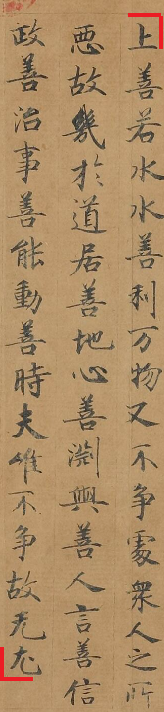 上善若水水善利万物又不争處衆人之所
恶故幾於道居善地心善渊與善人言善信
政善治事善能動善時夫唯不争故无尤